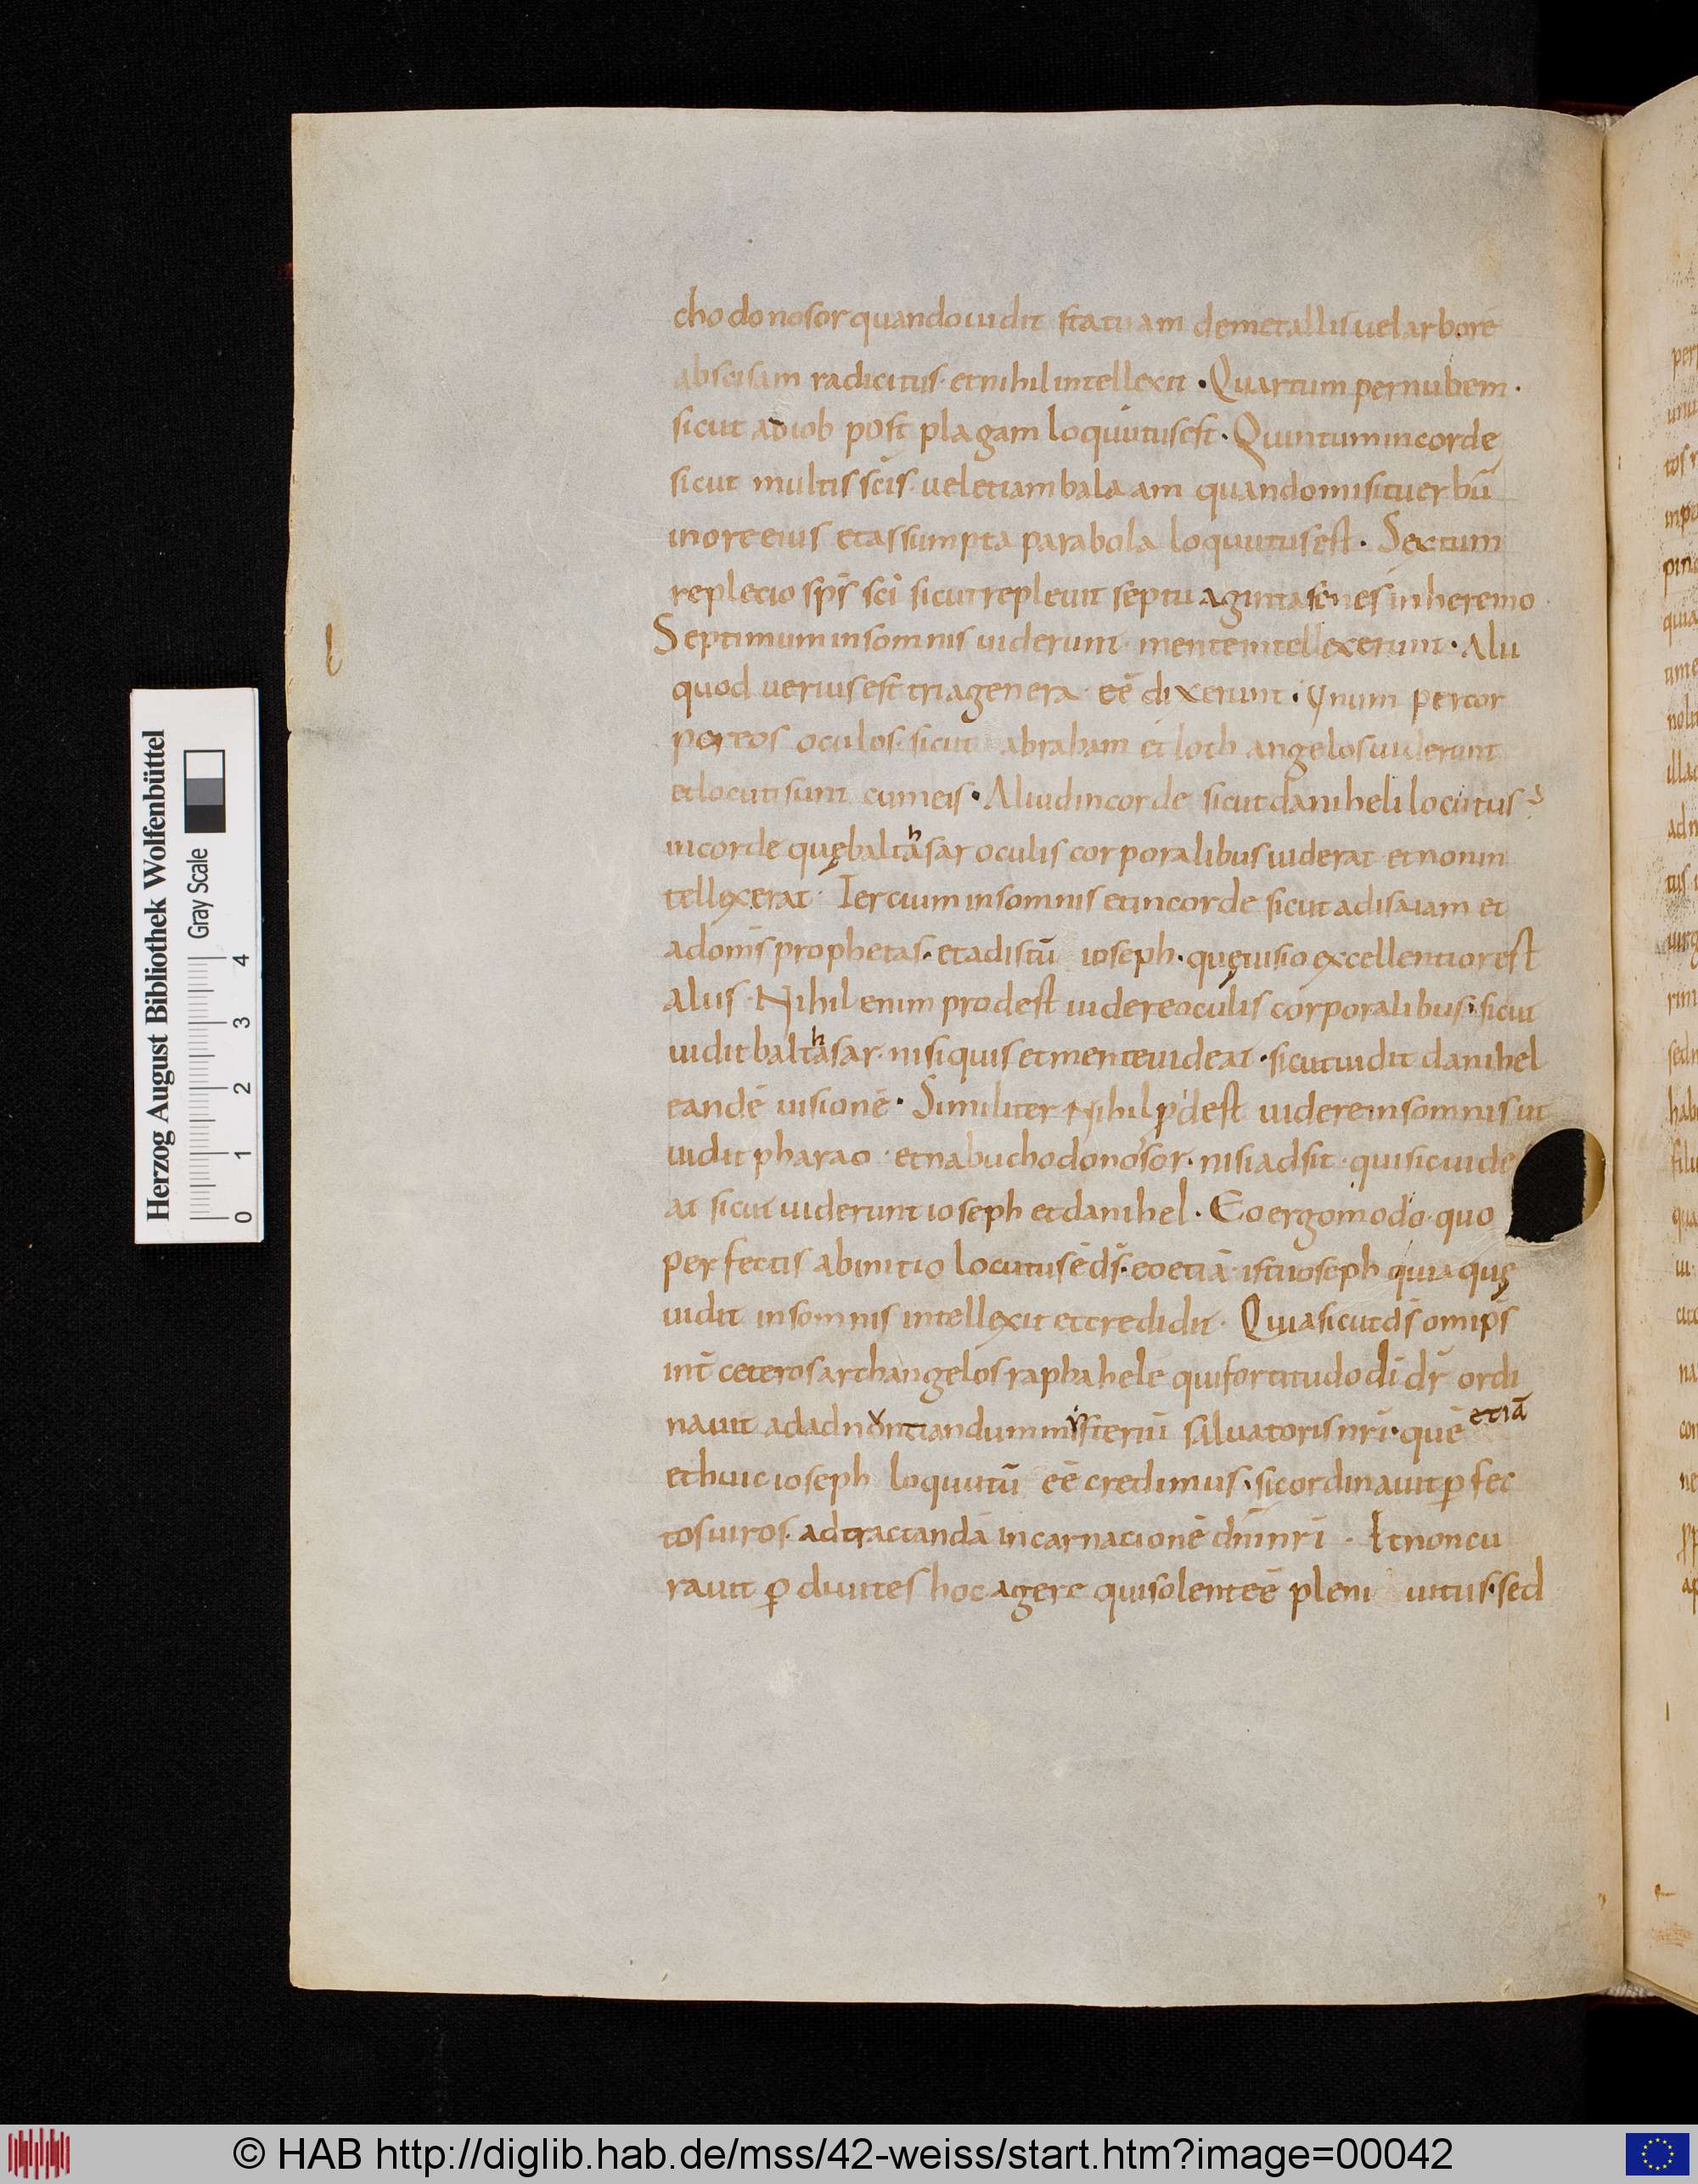 chodonosor quando uidit statuam demetallis uel arborē
abscisam radicitus · et nihil intellexit · Quartum per nubem ·
sicut ad iob post plagam loquutus est · Quintum in corde
sicut multis scīs · uel etiam bala am quando misit uerbū
in ore eius et assumpta parabola loquutus est · Sextum
repletio spīs scī sicut repleuit septuaginta senes in heremo
Septimum in somnis uiderunt · mente intellexerunt · Alii
quod uerius est tria genera · eē dixerunt · Unum per cor
poreos oculos · sicut abraham et loth angelos uiderunt
et locuti sunt cum eis · Aliud in corde sicut daniheli locutus
in corde quę balthasar oculis corporalibus uiderat et non in
tellexerat · Tercium in somnis et in corde sicut ad isaiam et
ad omīs prophetas · et ad istū ioseph · quę uisio excellentior est
aliis · Nihil enim prodest uidere oculis corporalibus · sicut
uidit balthasar · nisi quis et mente uideat · sicut uidit danihel
eandē uisionē · Similiter Nihil pdest uidere in somnis ut
uidit pharao · et nabuchodonosor · nisi adsit · qui sic uide
at sicut uiderunt ioseph et danihel · Eo ergo modo · quo
perfectis ab initio locutus ē ds̄ · eo etiā · isti ioseph quia quę
uidit in somnis intellexit et credidit · Quia sicut ds̄ omīps
int̄ ceteros archangelos raphahele qui fortitudo dī dr̄ ordi
nauit ad adnontiandum mysteriū saluatoris nr̄i · quē etiā
et huic ioseph loquutū eē credimus · sic ordinauit ꝑfec
tos uiros · ad tractandā incarnacionē dnī nrī · Et non cu
rauit ꝑ diuites hoc agere qui solent eē pleni uitiis · sed
Herzog August Bibliothek Wolfenbüttel
Gray Scale
0 1 2 3 4
© HAB http://diglib.hab.de/mss/42-weiss/start.htm?image=00042